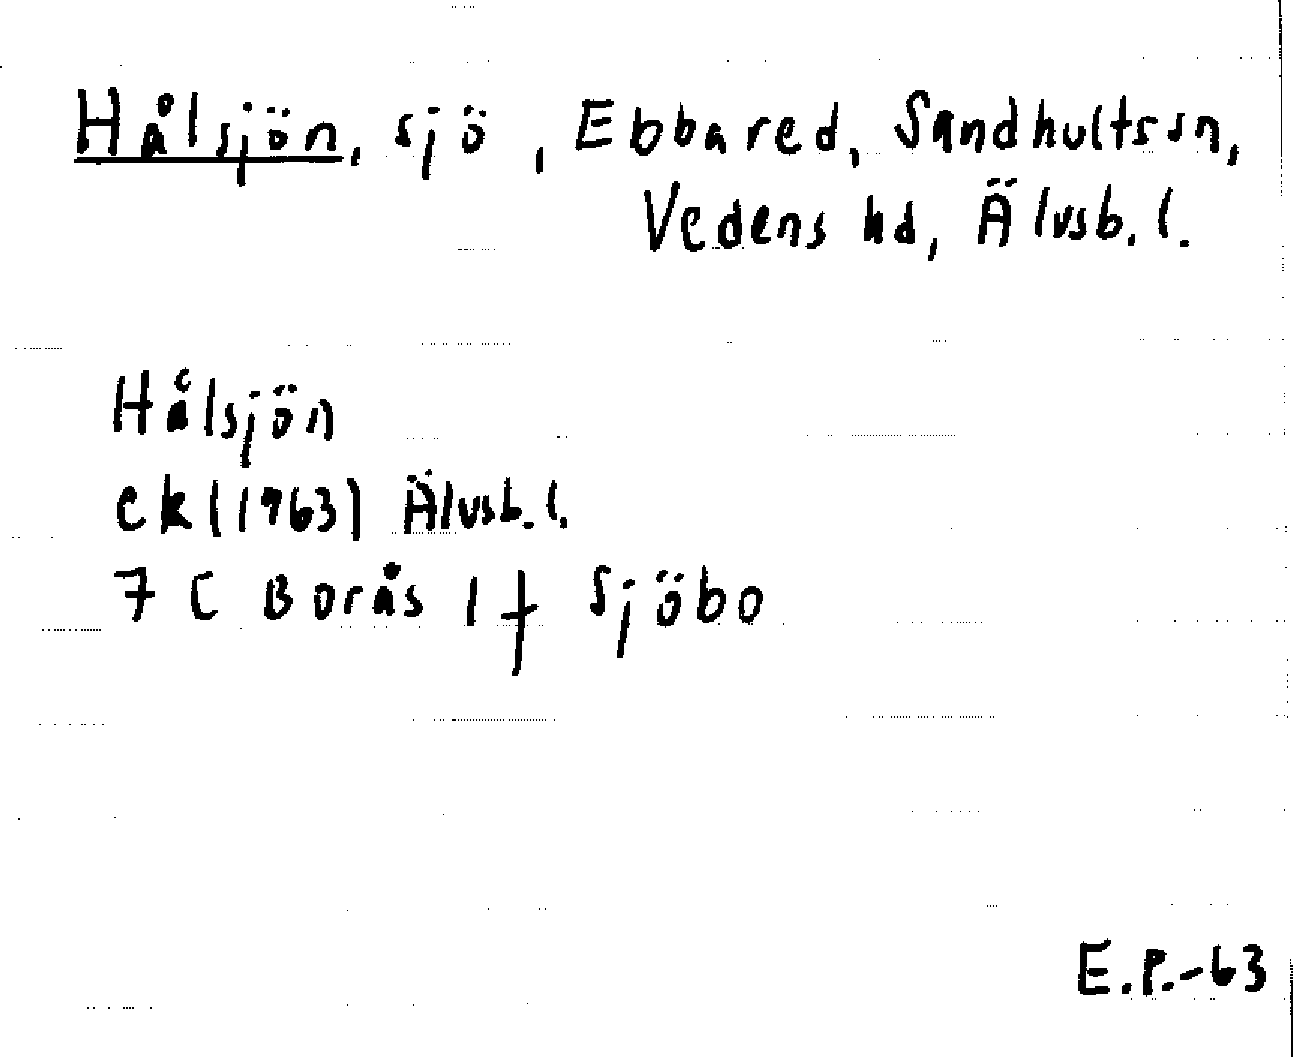 Hålsjön, sjö, Ebbared, Sandhults sn,
Vedens hd, Älvsb. l.
Hålsjön
ek (1963) Älvsb. l.
7 C Borås 1 f Sjöbo
E.P.-63